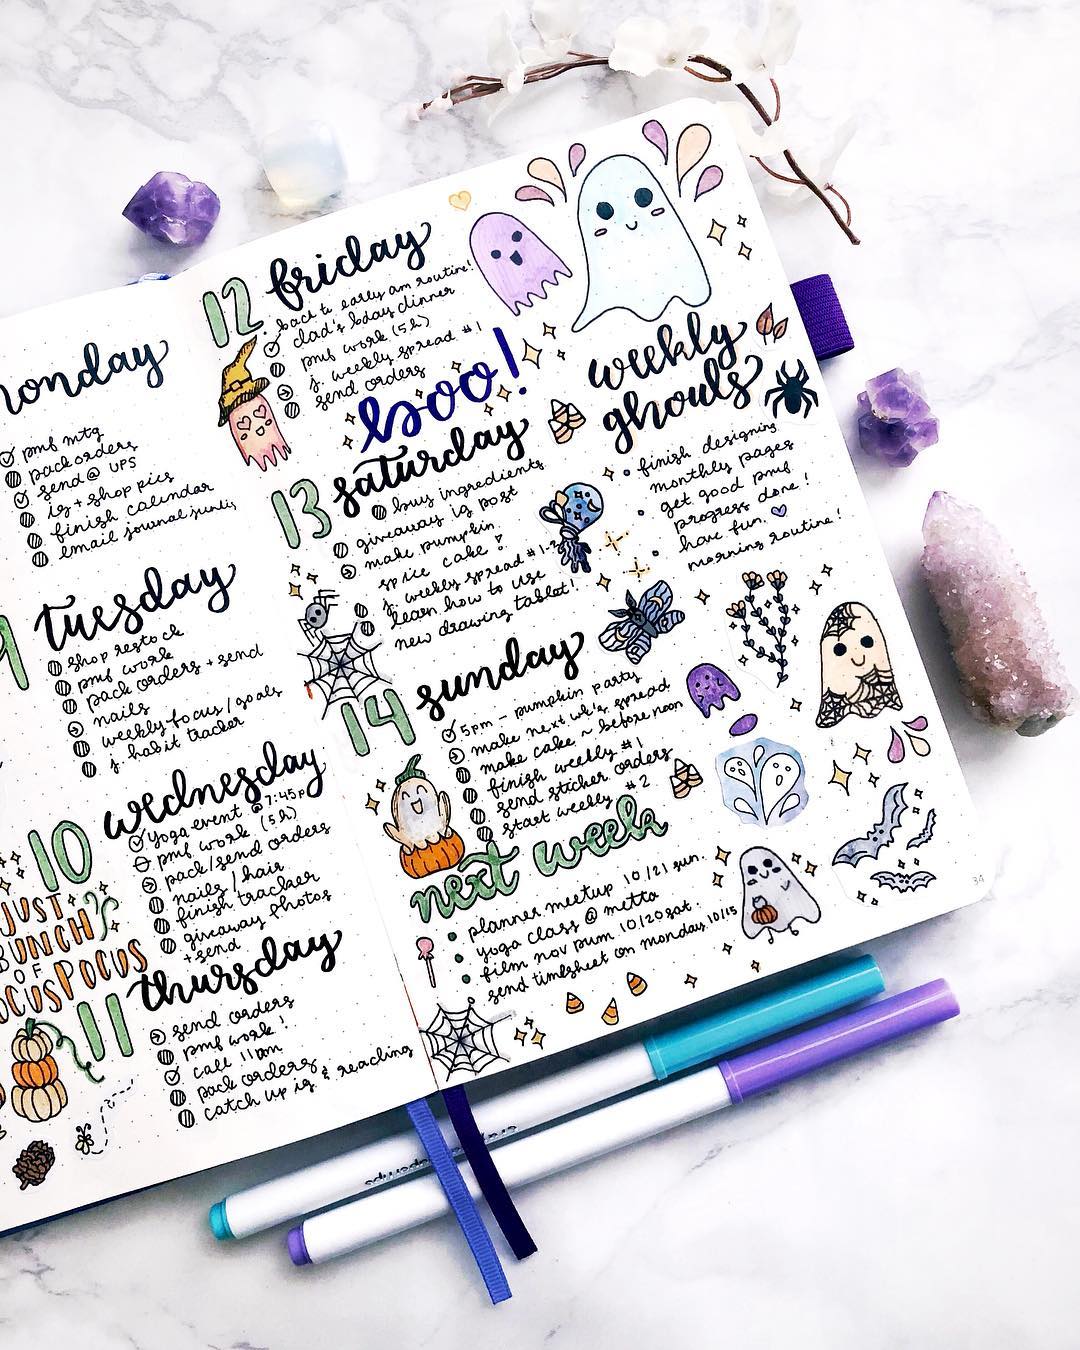 monday
pmf mtg
pack orders
send @ UPS
ig + shop pics
finish calendar
email journal junkies
9 tuesday
shop restock
pmf work
pack orders + send
nails
weekly focus/goals
f. habit tracker
10 wednesday
yoga event @ 7:45p
pmf work (5h)
pack/send orders
nails / hair
finish tracker
giveaway photos
+ send
JUST
BUNCH
OF
HOCUS POCUS
11 thursday
send orders
pmf work!
call 11am
pack orders
catch up ig & reading
12 friday
back to early am routine!
dad's bday dinner
pmf work (5h)
f. weekly spread #1
send orders
boo!
13 saturday
buy ingredients
giveaway ig post
make pumpkin
spice cake?
f. weekly spread #1-2
learn how to use
new drawing tablet!
14 sunday
5pm - pumpkin party
make next wk's spread
make cake ~ before noon
finish weekly #1
send sticker orders
start weekly #2
next week
planner meetup 10/21 sun.
yoga class @ metta
film nov pwm 10/20 sat.
send timesheet on monday 10/15
weekly
ghouls
finish designing
monthly pages
get good pmf
progress done!
have fun
morning routine!
34